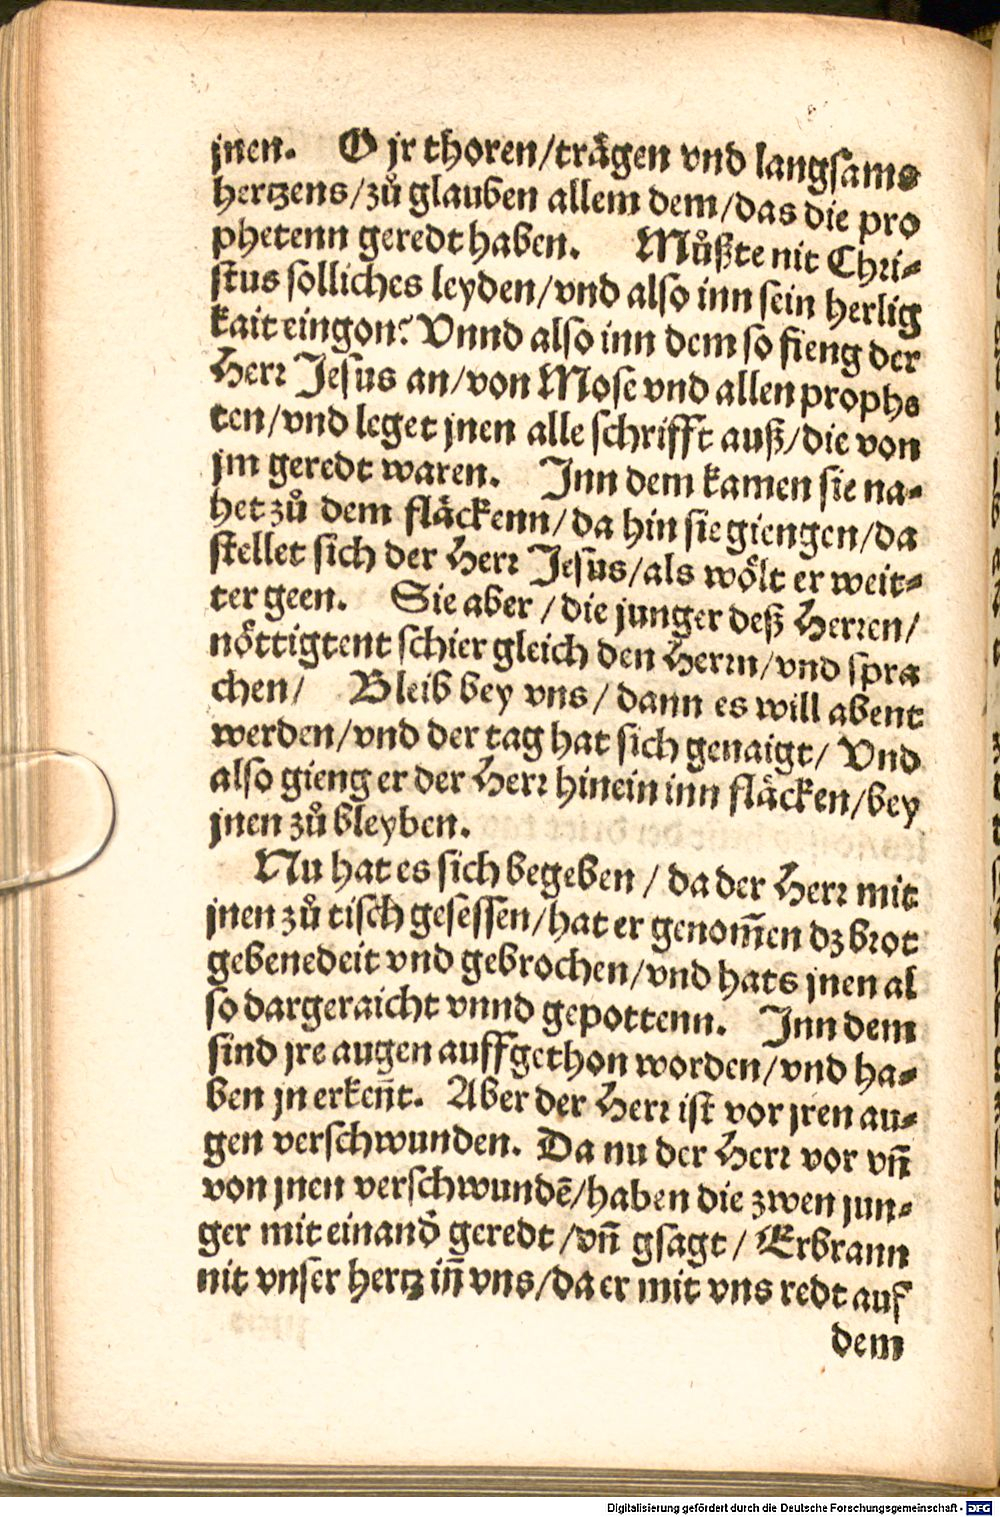 jnen. O jr thoren/trägen vnd langsams
hertzens/zuͦ glauben allem dem/das die pro
phetenn geredt haben. Muͦßte nit Chri-
stus solliches leyden/vnd also inn sein herlig
kait eingon? Vnnd also inn dem so fieng der
Herr Jesus an/von Mose vnd allen prophe
ten/vnd leget jnen alle schrifft auß/die von
jm geredt waren. Inn dem kamen sie na-
het zuͦ dem fläckenn/da hin sie giengen/da
stellet sich der Herr Jesus/als wölt er weit-
ter geen. Sie aber / die junger deß Herren/
nöttigtent schier gleich den Herrn/vnd spra
chen/ Bleib bey vns / dann es will abent
werden/vnd der tag hat sich genaigt/ Vnd
also gieng er der Herr hinein inn fläcken/bey
jnen zuͦ bleyben.
Nu hat es sich begeben / da der Herr mit
jnen zuͦ tisch gesessen/hat er genom̃en dz brot
gebenedeit vnd gebrochen/vnd hats jnen al
so dargeraicht vnnd gepottenn. Inn dem
sind jre augen auffgethon worden/vnd ha-
ben jn erkeñt. Aber der Herr ist vor jren au-
gen verschwunden. Da nu der Herr vor vñ
von jnen verschwundẽ/haben die zwen jun-
ger mit einand̕ geredt /vñ gsagt / Erbrann
nit vnser hertz iñ vns/da er mit vns redt auf
dem
Digitalisierung gefördert durch die Deutsche Forschungsgemeinschaft - DFG